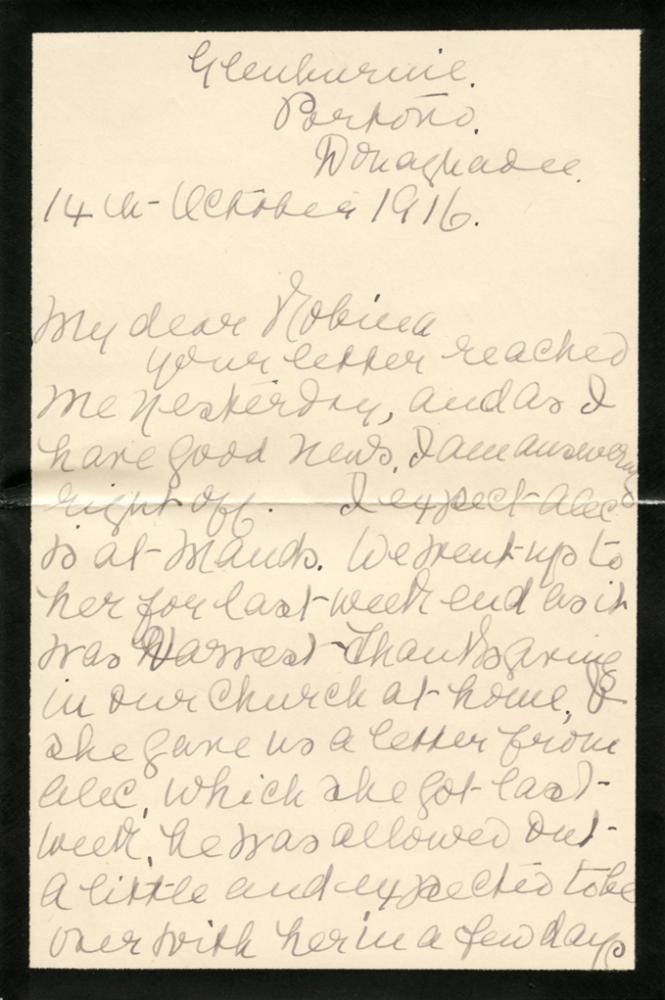 Glenburnie.
Portono.
Donaghadee.
14th October 1916.
My dear Robina
your letter reached
me yesterday, and as I
have good news, I am answering
right off. I expect Alec
is at Mauds. We went up to
her for last week end as it
was Harvest Thanksgiving
in our Church at home, &
she gave us a letter from
Alec, which she got last
week, he was allowed out
a little and expected to be
over with her in a few days